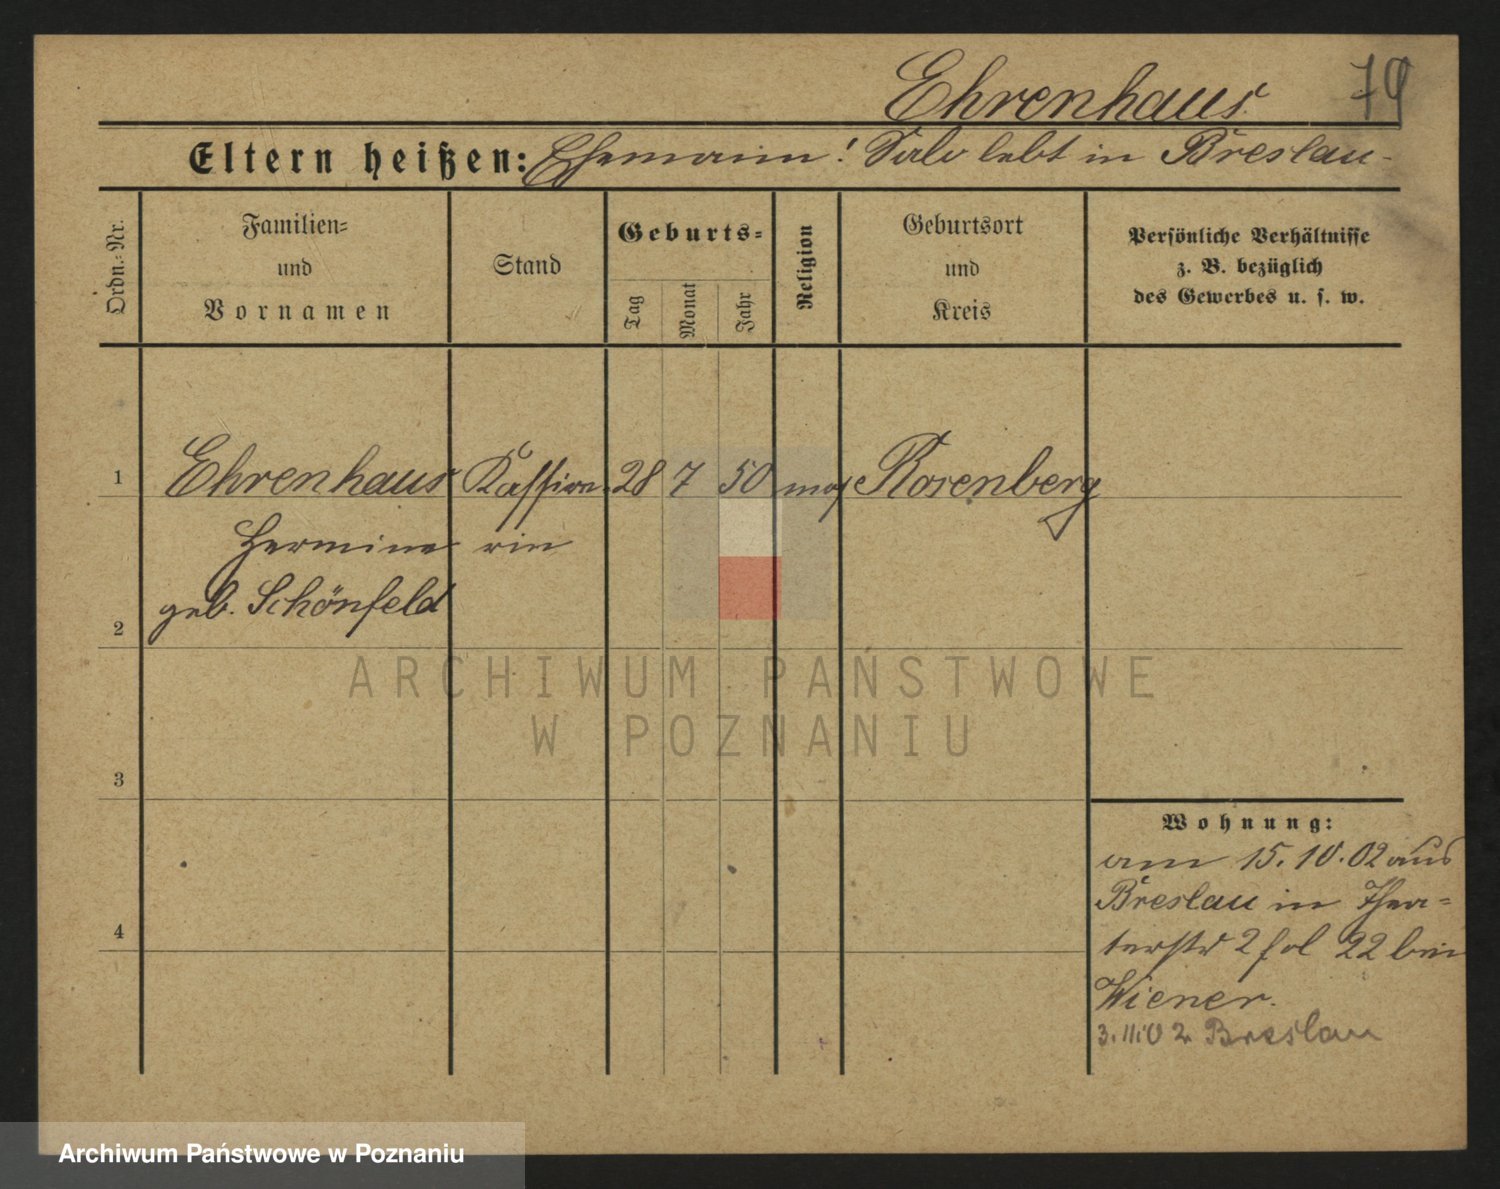 Ehrenhaus 79
Eltern heißen: Ehemann! Salo lebt in Breslau-
Ordn.-Nr.
Familien-
und
Vornamen
Stand
Geburts-
Tag
Monat
Jahr
Religion
Geburtsort
und
Kreis
Persönliche Verhältnisse
z. B. bezüglich
des Gewerbes u. s. w.
1 Ehrenhaus Kassire- 28 7 50 mos Rosenberg
Hermine rin
geb. Schönfeld
2
3
4
Wohnung:
am 15.10.02 aus
Breslau in Thea-
terstr 2 fol 22 bei
Wiener.
3.11.02 Breslau
ARCHIWUM PAŃSTWOWE
W POZNANIU
Archiwum Państwowe w Poznaniu